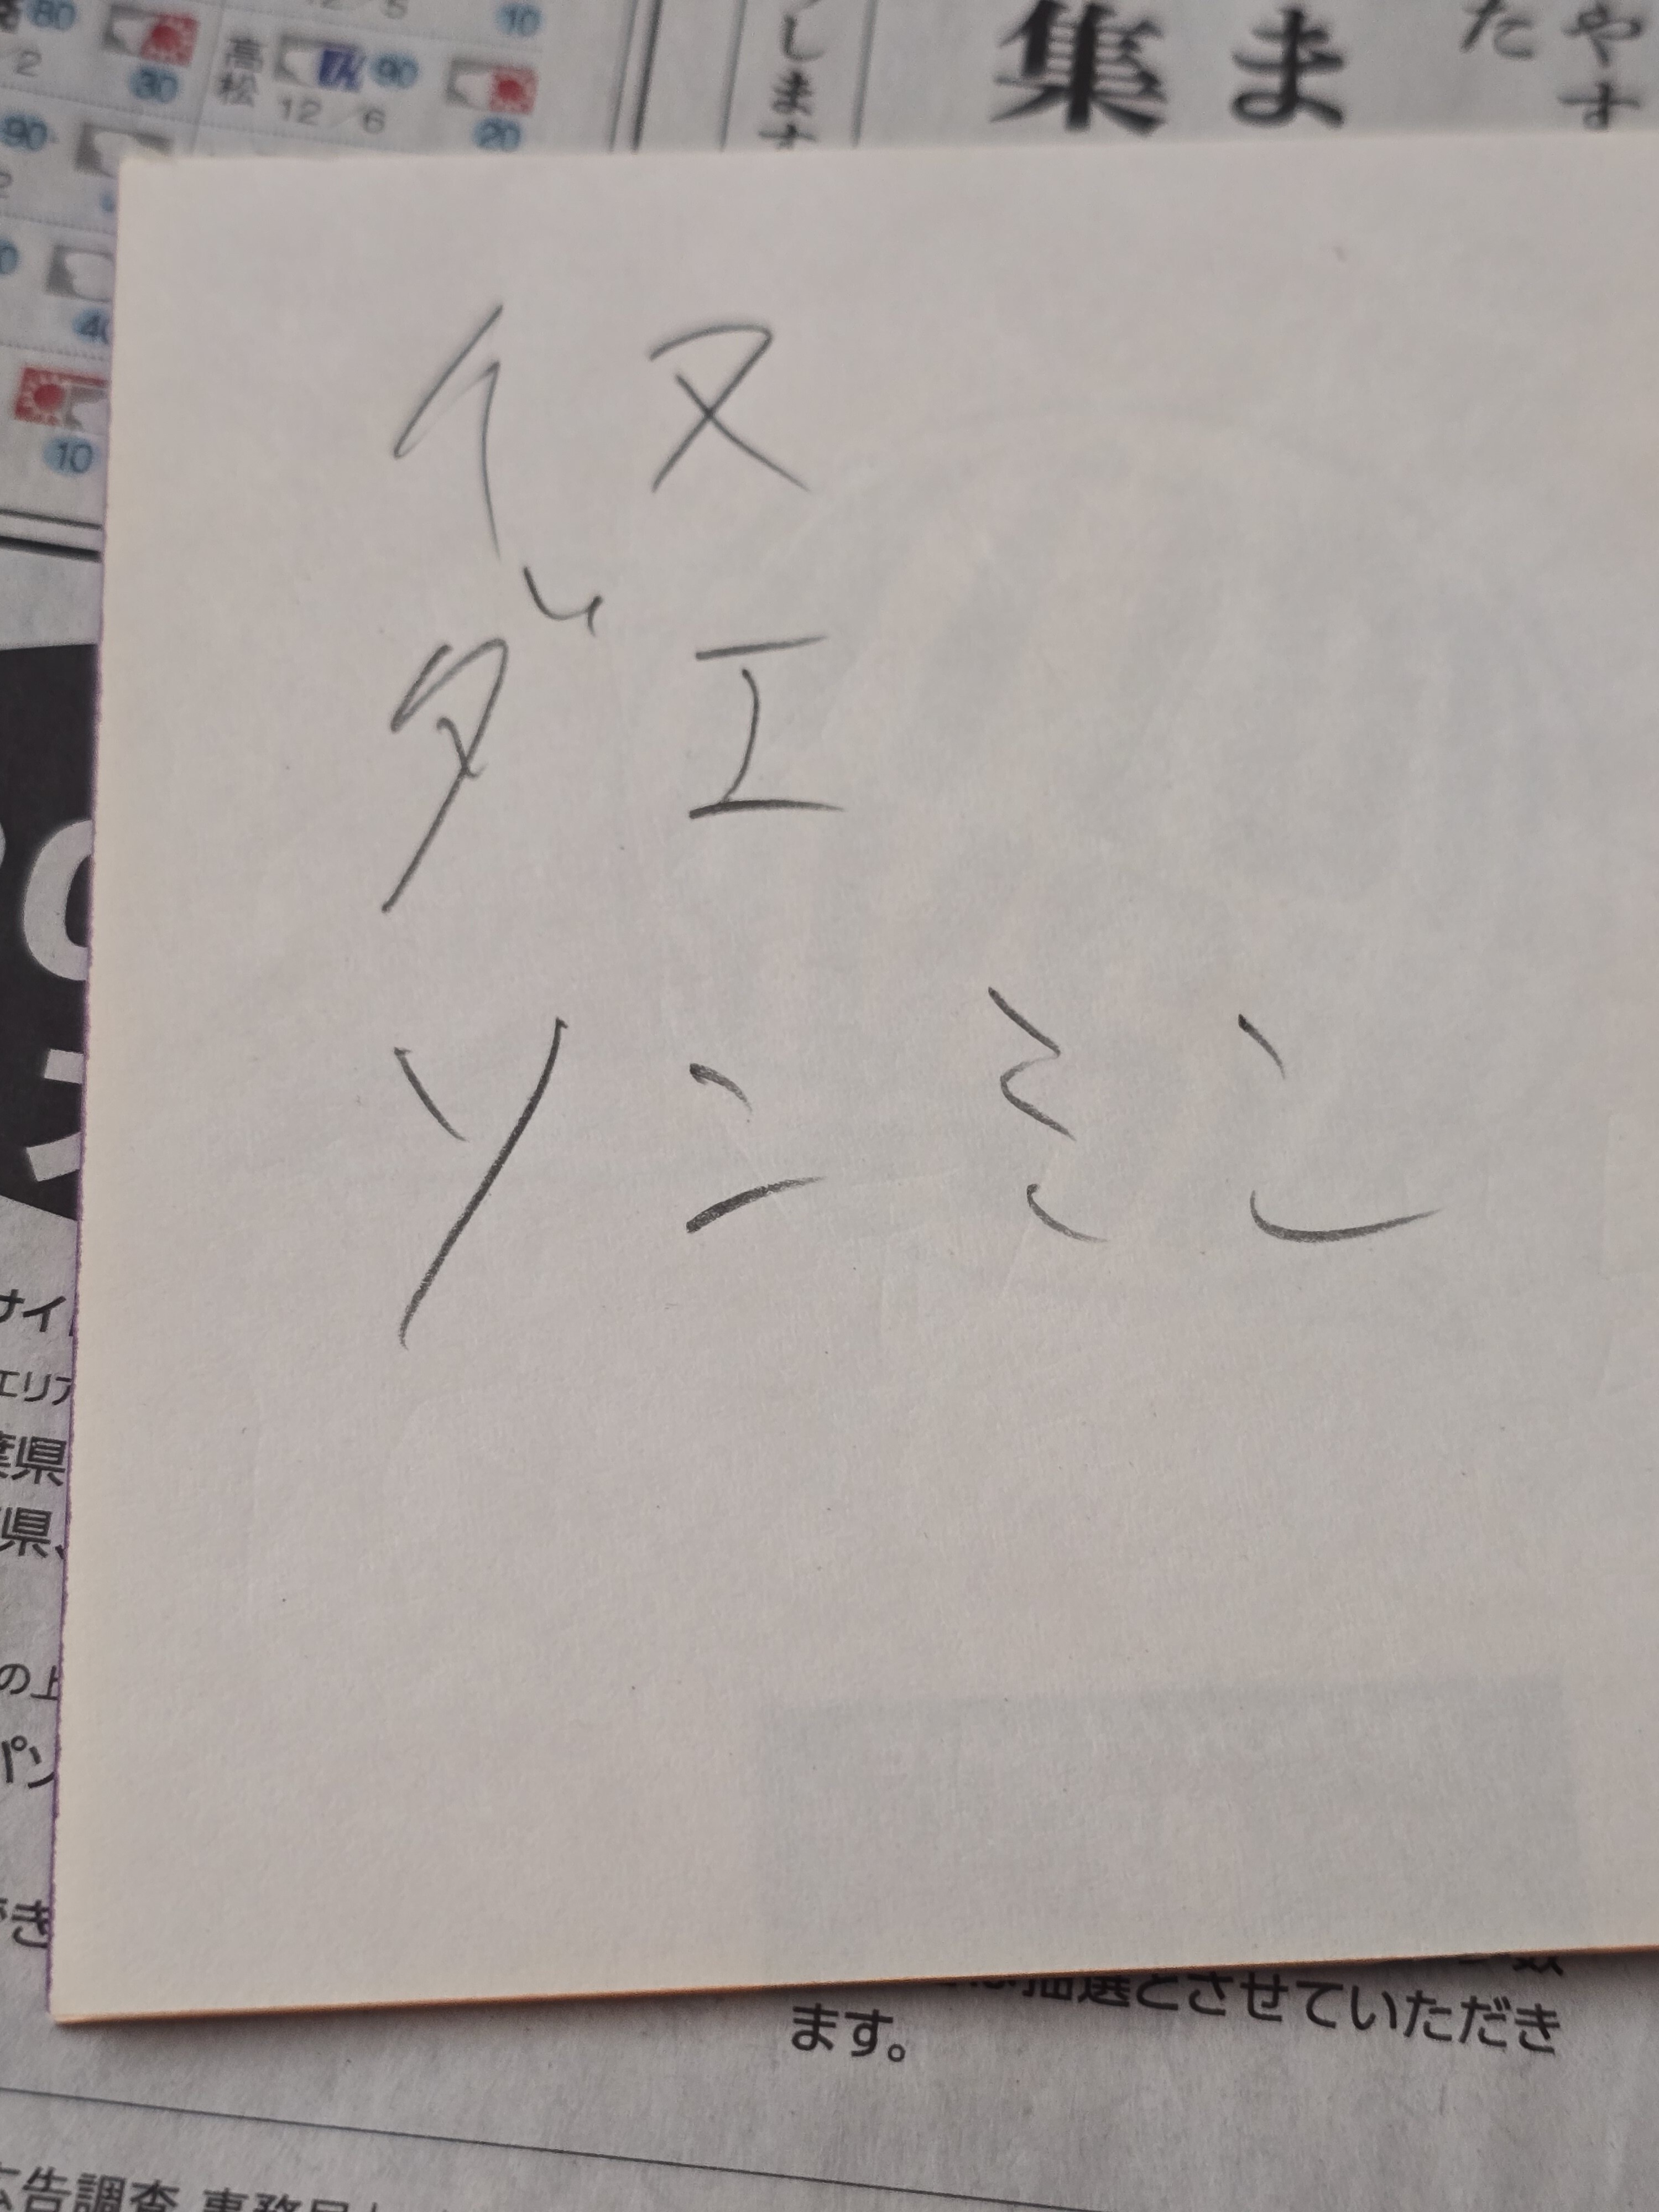 80
/2
30
高松
90
12/6
20
12/5
10
90
40
10
します
集ま
た
やす
イヌ
ダエ
ソンミン
サイ
エリア
葉県
県、
の上
パソ
でき
は抽選とさせていただき
ます。
広告調査